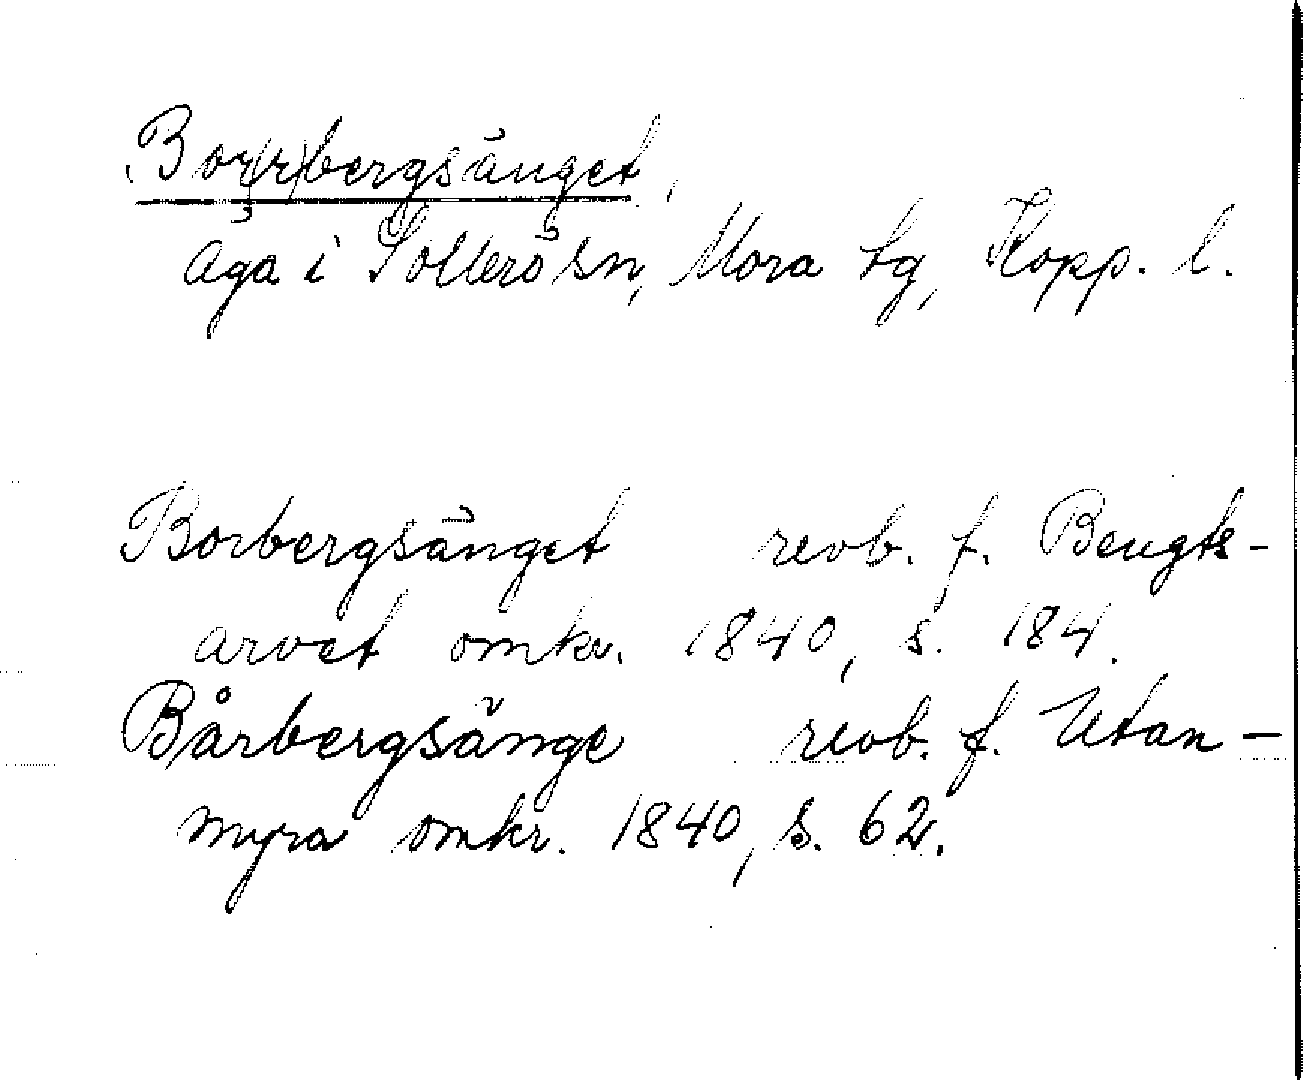 Bor(r)bergsänget,
äga i Sollerö sn, Mora tg, Kopp. l.
Borbergsänget revb. f. Bengts-
arvet omkr. 1840, s. 184.
Bårbergsänge revb. f. Utan-
myra omkr. 1840, s. 62.